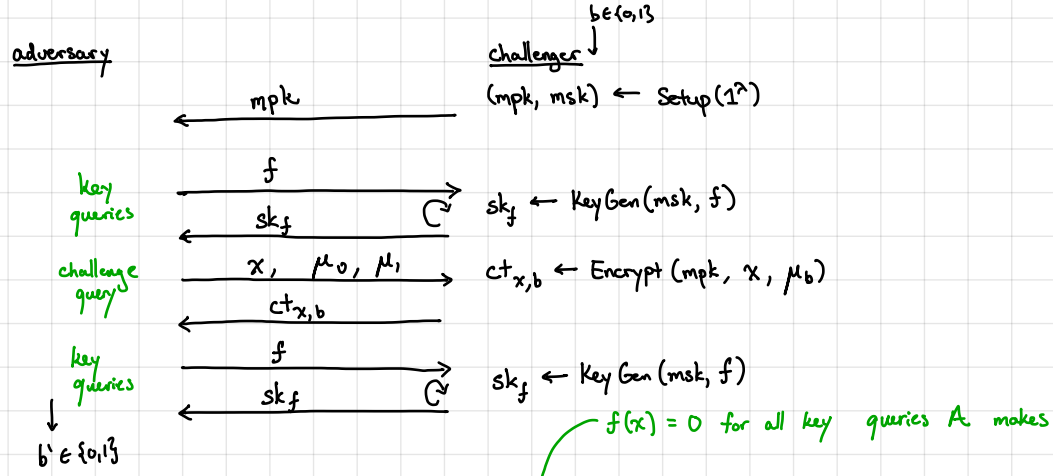 b∈{0,1}
adversary
challenger
mpk
(mpk, msk) ← Setup(1^λ)
key queries
f
sk_f
sk_f ← KeyGen(msk, f)
challenge query
x, μ_0, μ_1
ct_{x,b} ← Encrypt(mpk, x, μ_b)
ct_{x,b}
key queries
f
sk_f
sk_f ← KeyGen(msk, f)
f(x) = 0 for all key queries A makes
b' ∈ {0,1}